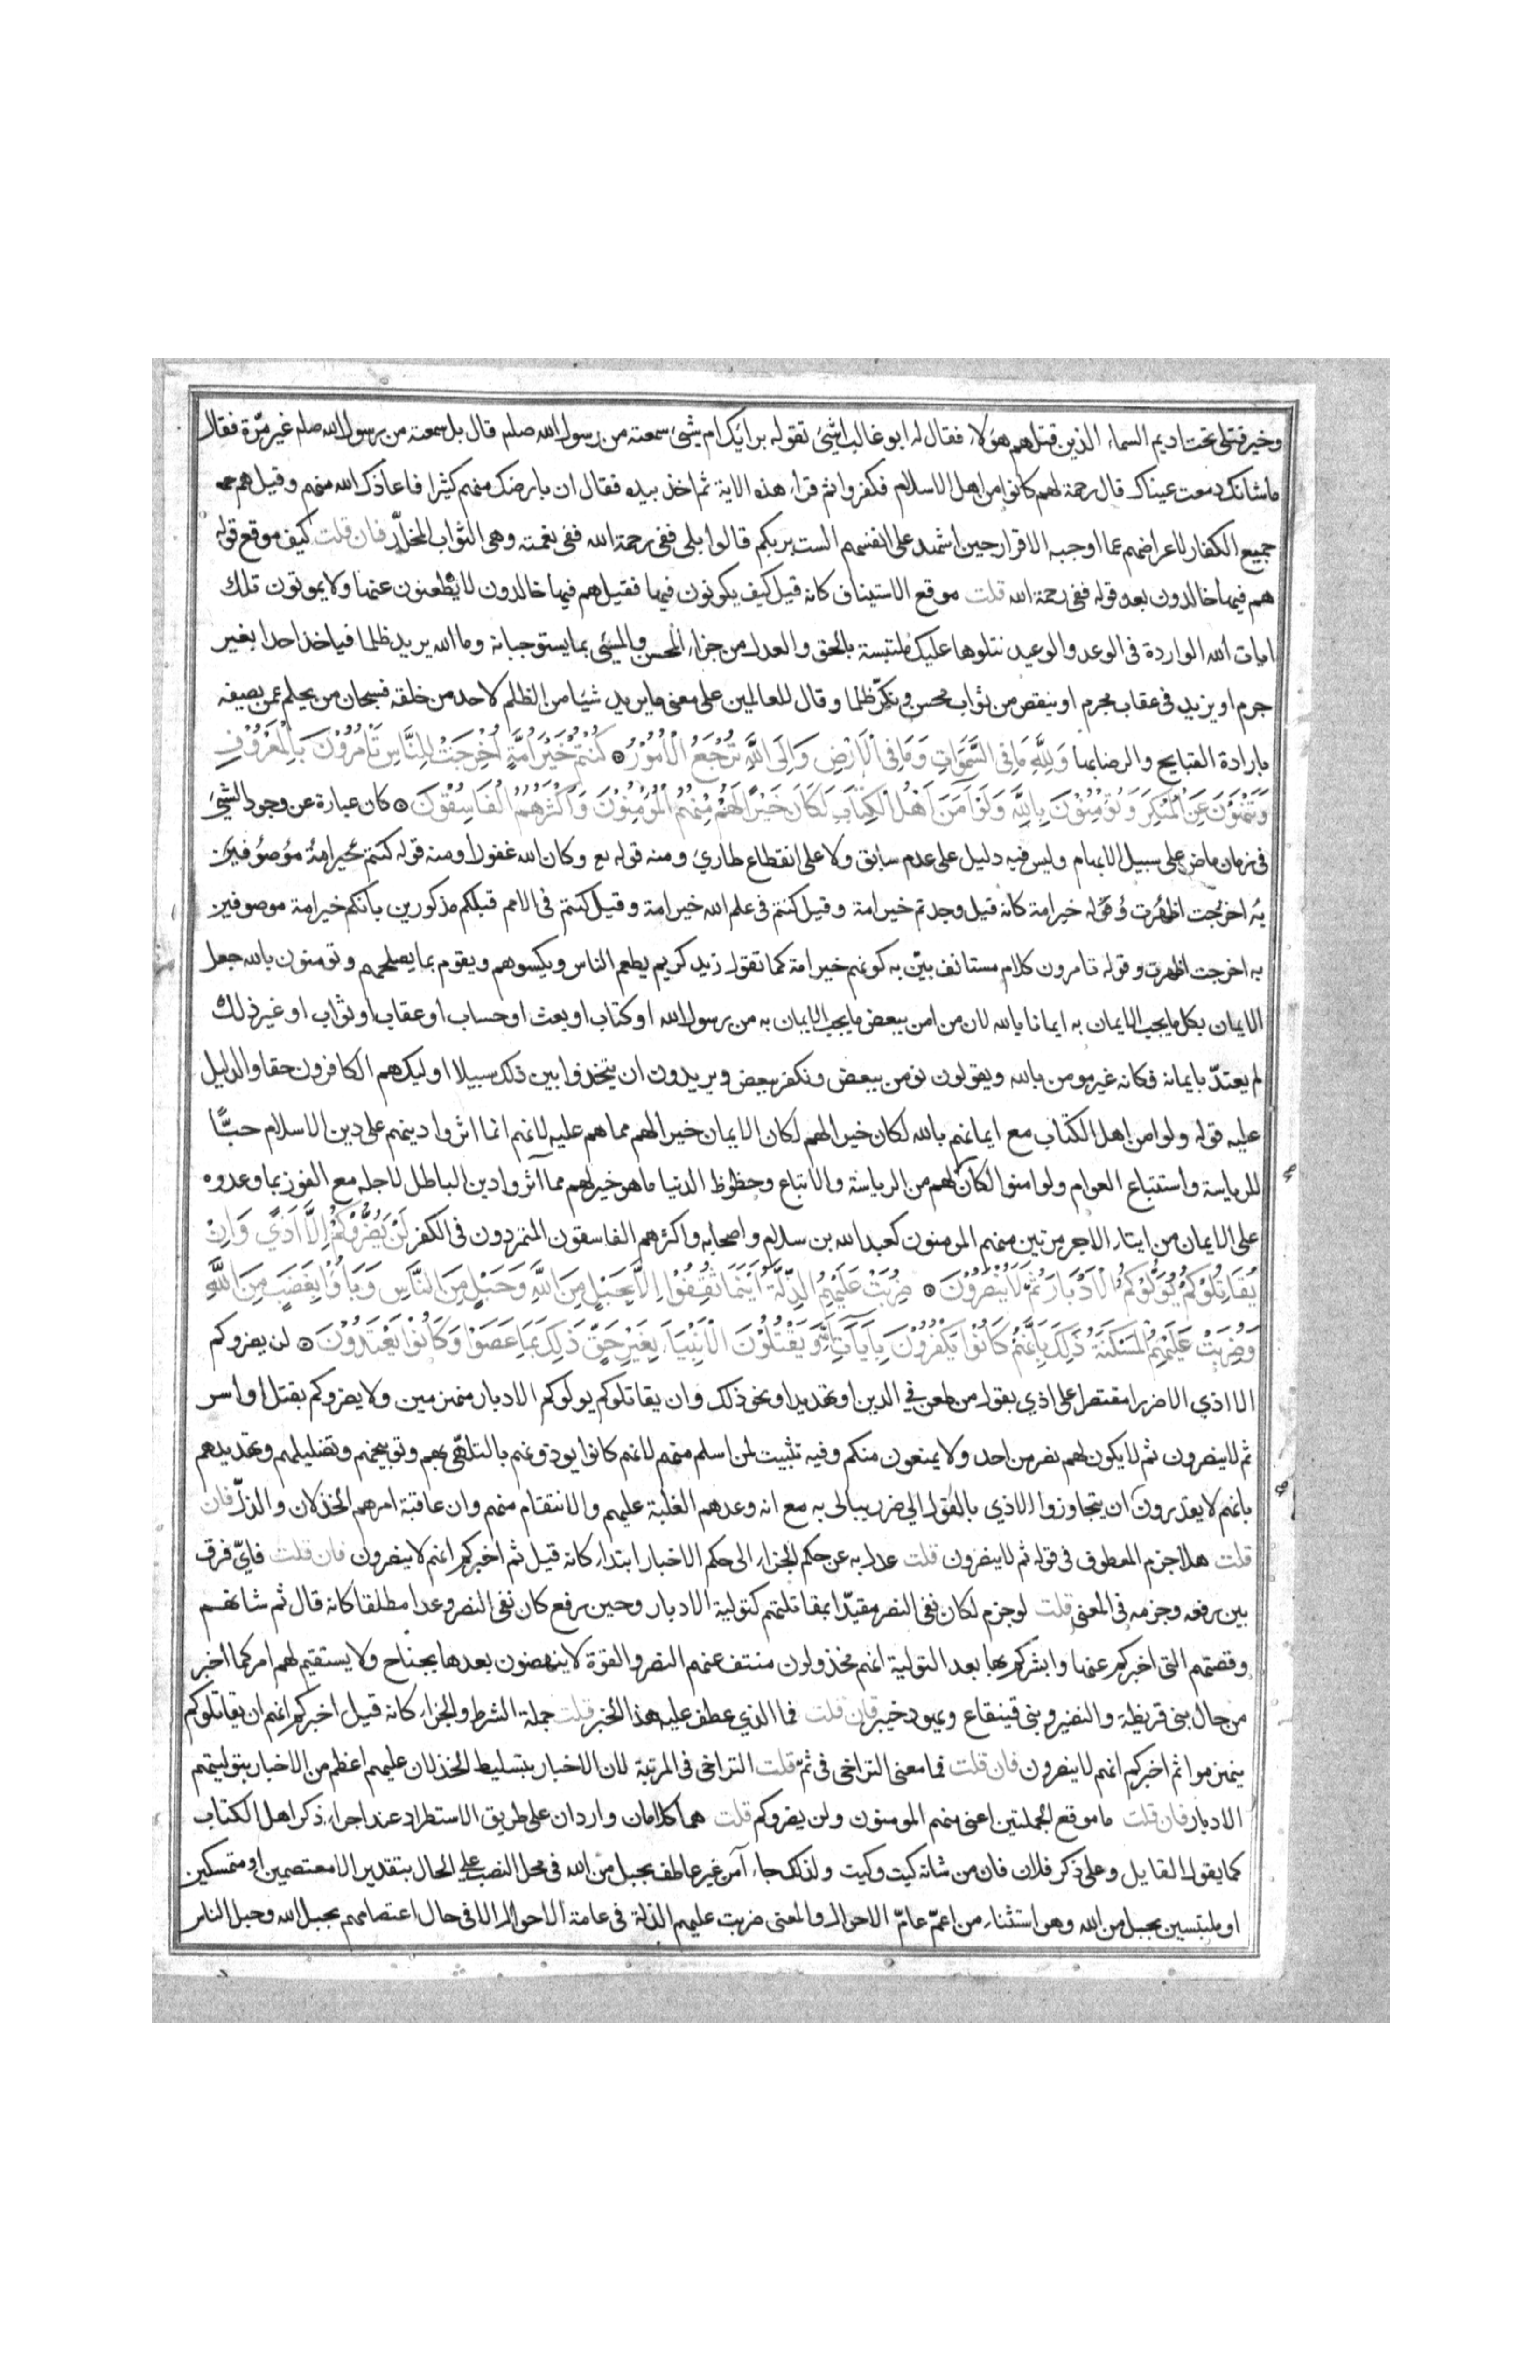 وخير قتلى تحت اديم السماء الذين قتلهم هؤلاء فقال له ابو غالب اشئ تقوله برايك ام شئ سمعته من رسول الله صلم قال بل سمعته من رسول الله صلم غير مرّة فقال
ما شانك دمعت عيناك قال رحمة لهم كانوا من اهل الاسلام فكفروا ثم قراء هذه الاية ثم اخذ بيده فقال ان بارضك منهم كثيرا فاعاذك الله منهم وقيل هم
جميع الكفار لاعراضهم عما اوجبه الاقرار حين اشهد على انفسهم الست بربكم قالوا بلى ففى رحمة الله ففى نعمته وهى الثواب المخلّد فان قلت كيف موقع قوله
هم فيها خالدون بعد قوله ففى رحمة الله قلت موقع الاستيناف كانه قيل كيف يكونون فيها فقيل هم فيها خالدون لا يظعنون عنها ولا يموتون تلك
ايات الله الواردة فى الوعد والوعيد نتلوها عليك ملتبسة بالحق والعدل من جزاء المحسن والمسئى بما يستوجبانه وما الله يريد ظلما فياخذ احدا بغير
جرم او يزيد فى عقاب مجرم او ينقص من ثواب محسن ونكّر ظلما وقال للعالمين على معنى ما يريد شيئا من الظلم لاحد من خلقه فسبحان من يحلم عمن يصفه
بارادة القبايح والرضا بها وَلِلَّهِ مَا فِى السَّمَوَاتِ وَمَا فِى الْاَرْضِ وَاِلَى اللَّهِ تُرْجَعُ الْاُمُوْرُ كُنْتُمْ خَيْرَ اُمَّةٍ اُخْرِجَتْ لِلنَّاسِ تَأمُرُوْنَ بِالْمَعْرُوْفِ
وَتَنْهَوْنَ عَنِ الْمُنْكَرِ وَتُؤْمِنُوْنَ بِاللَّهِ وَلَوْ اَمَنَ اَهْلُ الْكِتَابِ لَكَانَ خَيْرًا لَهُمْ مِنْهُمُ الْمُؤْمِنُوْنَ وَاَكْثَرُهُمُ الْفَاسِقُوْنَ كان عبارة عن وجود الشئ
فى زمان ماض على سبيل الابهام وليس فيه دليل على عدم سابق ولا على انقطاع طارئ ومنه قوله تع وكان الله غفورا ومنه قوله كنتم خير امة موصوفين
به اخرجت اظهرت وقوله خير امة كانه قيل وجدتم خير امة وقيل كنتم فى علم الله خير امة وقيل كنتم فى الامم قبلكم مذكورين بانكم خير امة موصوفين
به اخرجت اظهرت وقوله تامرون كلام مستانف بيّن به كونهم خير امة كما تقول زيد كريم يطعم الناس ويكسوهم ويقوم بما يصلحهم وتومنون بالله جعل
الايمان بكل ما يجب الايمان به ايمانا بالله لان من امن ببعض ما يجب الايمان به من رسول الله او كتاب او بعث او حساب او عقاب او ثواب او غير ذلك
لم يعتدّ بايمانه فكانه غير مومن بالله ويقولون نومن ببعض ونكفر ببعض ويريدون ان يتخذوا بين ذلك سبيلا اوليك هم الكافرون حقا والدليل
عليه قوله ولو امن اهل الكتاب مع ايمانهم بالله لكان خيرا لهم لكان الايمان خيرا لهم مما هم عليه لانهم انما اثروا دينهم على دين الاسلام حبًّا
للرياسة واستتباع العوام ولو امنوا لكان لهم من الرياسة والاتباع وحظوظ الدنيا ما هو خير لهم مما اثروا دين الباطل لاجله مع الفوز بما وعدوه
على الايمان من ايتاء الاجر مرتين منهم المومنون كعبد الله بن سلام واصحابه واكثرهم الفاسقون المتمردون فى الكفر لَنْ يَضُرُّوْكُمْ اِلَّا اَذًي وَاِنْ
يُقَاتِلُوْكُمْ يُوَلُّوْكُمُ الْاَدْبَارَ ثُمَّ لَا يُنْصَرُوْنَ ضُرِبَتْ عَلَيْهِمُ الذِّلَّةُ اَيْنَمَا ثُقِفُوْا اِلَّا بِحَبْلٍ مِنَ اللَّهِ وَحَبْلٍ مِنَ النَّاسِ وَبَاؤُا بِغَضَبٍ مِنَ اللَّهِ
وَضُرِبَتْ عَلَيْهِمُ الْمَسْكَنَةُ ذَلِكَ بِاَنَّهُمْ كَانُوْا يَكْفُرُوْنَ بِاَيَآتِ اللَّهِ وَيَقْتُلُوْنَ الْاَنْبِيَاءَ بِغَيْرِ حَقٍّ ذَلِكَ بِمَا عَصَوْا وَكَانُوْا يَعْتَدُوْنَ لن يضروكم
الا اذي الا ضررا مقتصرا على اذي بقول من طعن في الدين او تهديد او نحو ذلك وان يقاتلوكم يولوكم الادبار منهزمين ولا يضروكم بقتل او اسر
ثم لا ينصرون ثم لا يكون لهم نصر من احد ولا يمنعون منكم وفيه تثبيت لمن اسلم منهم لانهم كانوا يوذونهم بالتلهّى بهم وتوبيخهم وتضليلهم وتهديدهم
بانهم لا يقدرون ان يتجاوزوا الاذي بالقول الي ضرر يبالى به مع انه وعدهم الغلبة عليهم والانتقام منهم وان عاقبة امرهم الخذلان والذلّ فان
قلت هلا جزم المعطوف فى قوله ثم لا ينصرون قلت عدل به عن حكم الجزاء الى حكم الاخبار ابتداء كانه قيل ثم اخبركم انهم لا ينصرون فان قلت فايّ فرق
بين رفعه وجزمه فى المعنى قلت لو جزم لكان نفى النصر مقيّدا بمقاتلتهم كتولية الادبار وحين رفع كان نفى النصر وعدا مطلقا كانه قال ثم شانهم
وقصتهم التى اخبركم عنها وابشركم بها بعد التولية انهم مخذولون منتف عنهم النصر والقوة لا ينهضون بعدها بجناح ولا يستقيم لهم امر كما اخبر
من حال بنى قريظة والنضير وبنى قينقاع ويهود خيبر فان قلت فما الذي عطف عليه هذا الخبر قلت جملة الشرط والجزاء كانه قيل اخبركم انهم ان يقاتلوكم
ينهزموا ثم اخبركم انهم لا ينصرون فان قلت فما معنى التراخى فى ثمّ قلت التراخى فى المرتبة لان الاخبار بتسليط الخذلان عليهم اعظم من الاخبار بتوليتهم
الادبار فان قلت ما موقع الجملتين اعنى منهم المومنون ولن يضروكم قلت هما كلامان واردان على طريق الاستطراد عند اجراء ذكر اهل الكتاب
كما يقول القايل وعلى ذكر فلان فان من شانه كيت وكيت ولذلك جاء آمن غير عاطف بحبل من الله فى محل النصب على الحال بتقدير الا معتصمين او متمسكين
او ملتبسين بحبل من الله وهو استثناء من اعمّ عامّ الاحوال والمعنى ضربت عليهم الذلة فى عامة الاحوال الا فى حال اعتصامهم بحبل الله وحبل الناس